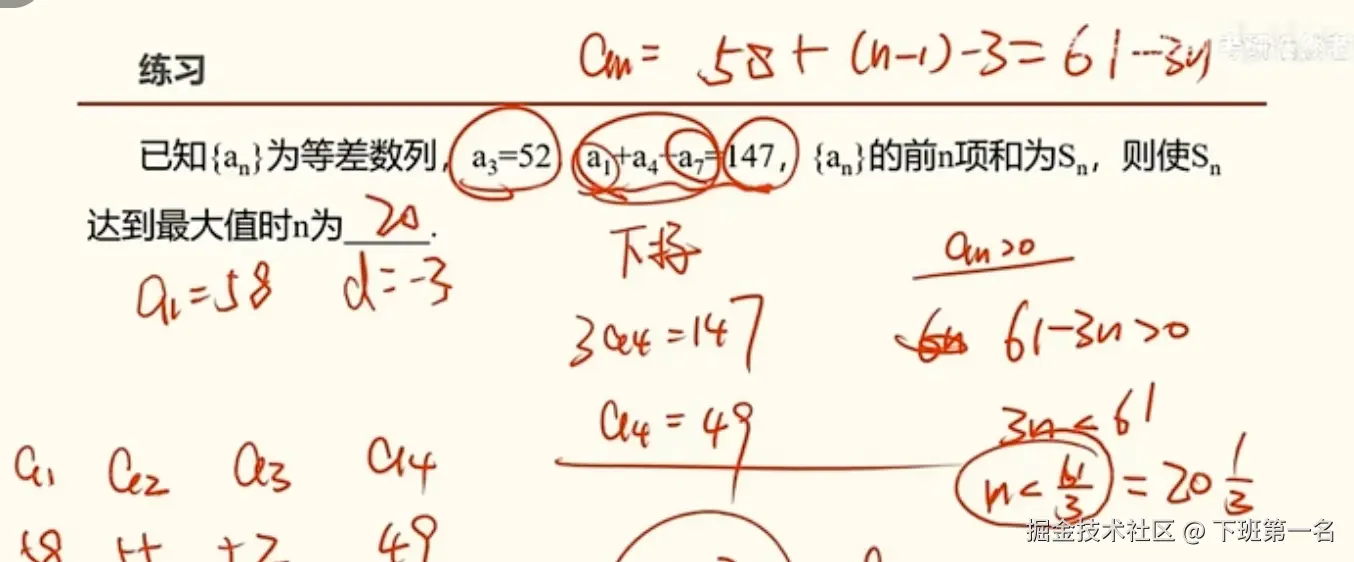 练习
aₙ = 58 + (n-1)-3 = 61-3n
已知{aₙ}为等差数列, a₃=52 a₁+a₄+a₇=147, {aₙ}的前n项和为Sₙ，则使Sₙ
达到最大值时n为 20 .
a₁=58 d=-3
下标
aₙ>0
3a₄=147
61-3n>0
a₄=49
3n<61
n<61/3 = 20 1/3
a₁ a₂ a₃ a₄
49
掘金技术社区 @ 下班第一名